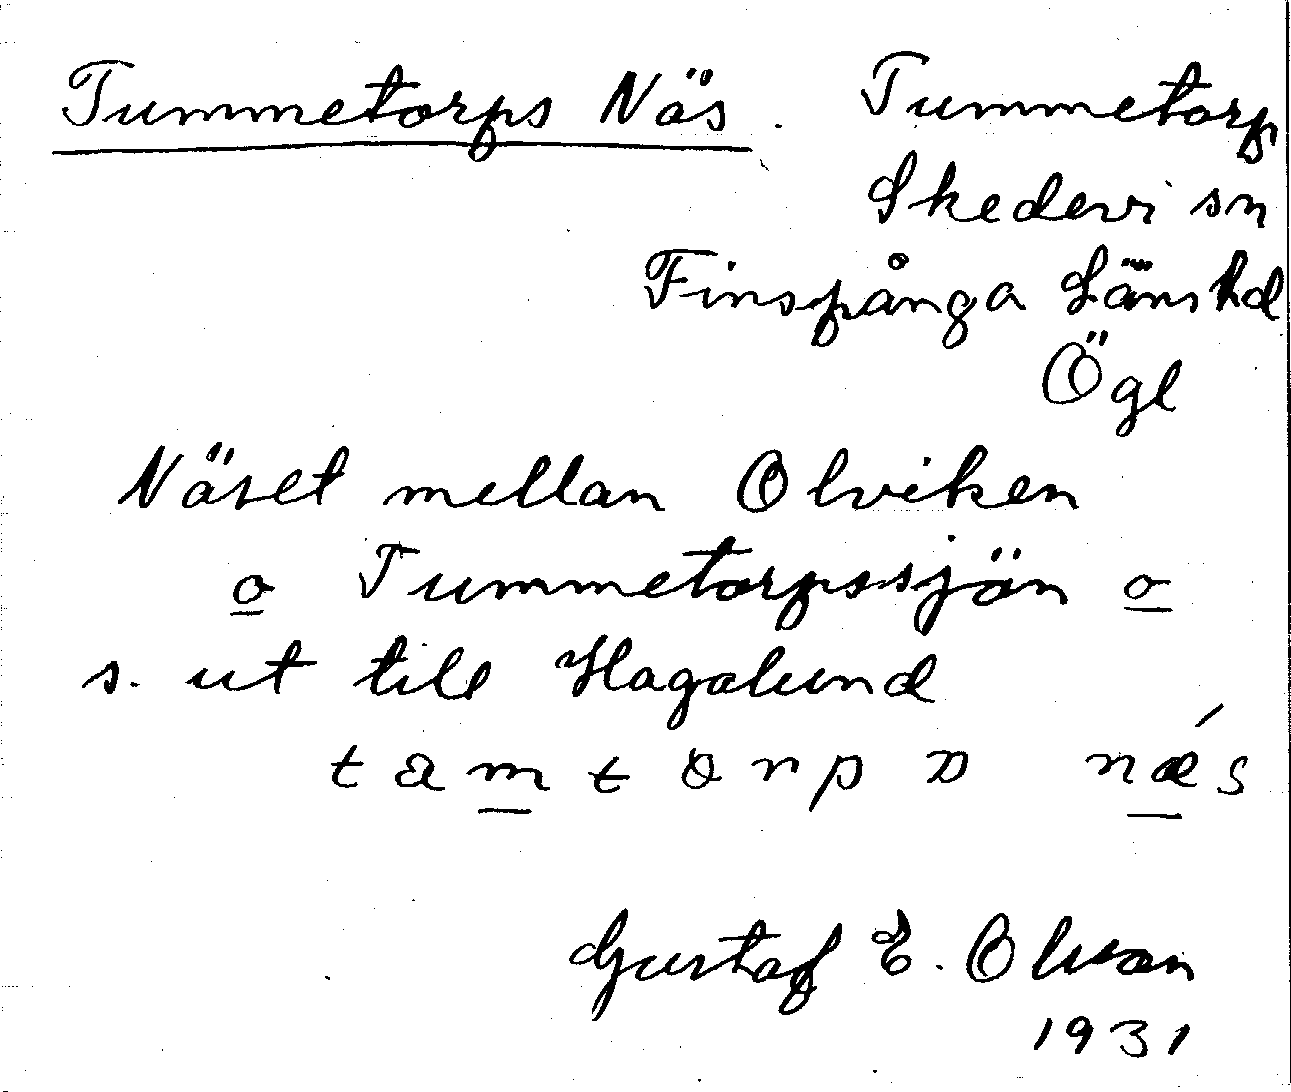 Tummetorps Näs. Tummetorp
Skedevi sn
Finspånga Läns hd
Ögl
Näset mellan Olviken
o Tummetorpssjön o
s. ut till Hagalund
næs
Gustaf E. Olson
1931